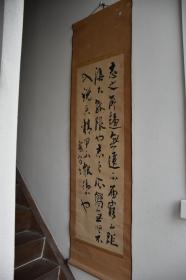 志之所趨無遠不届窮山距
海不能限也志之所向無堅不
入鋭兵精甲不能禦也